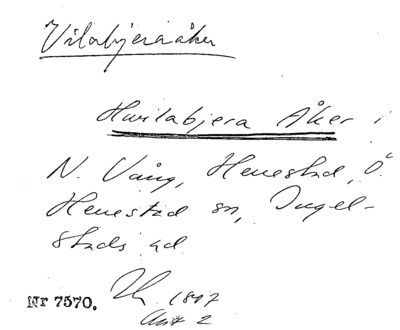 Vilabjeraåker
Hwilabjera Åker i
N. Vång, Henestad, Ö.
Henestad sn, Ingel-
stads hd
Nr 7570. 1807
Akt 2